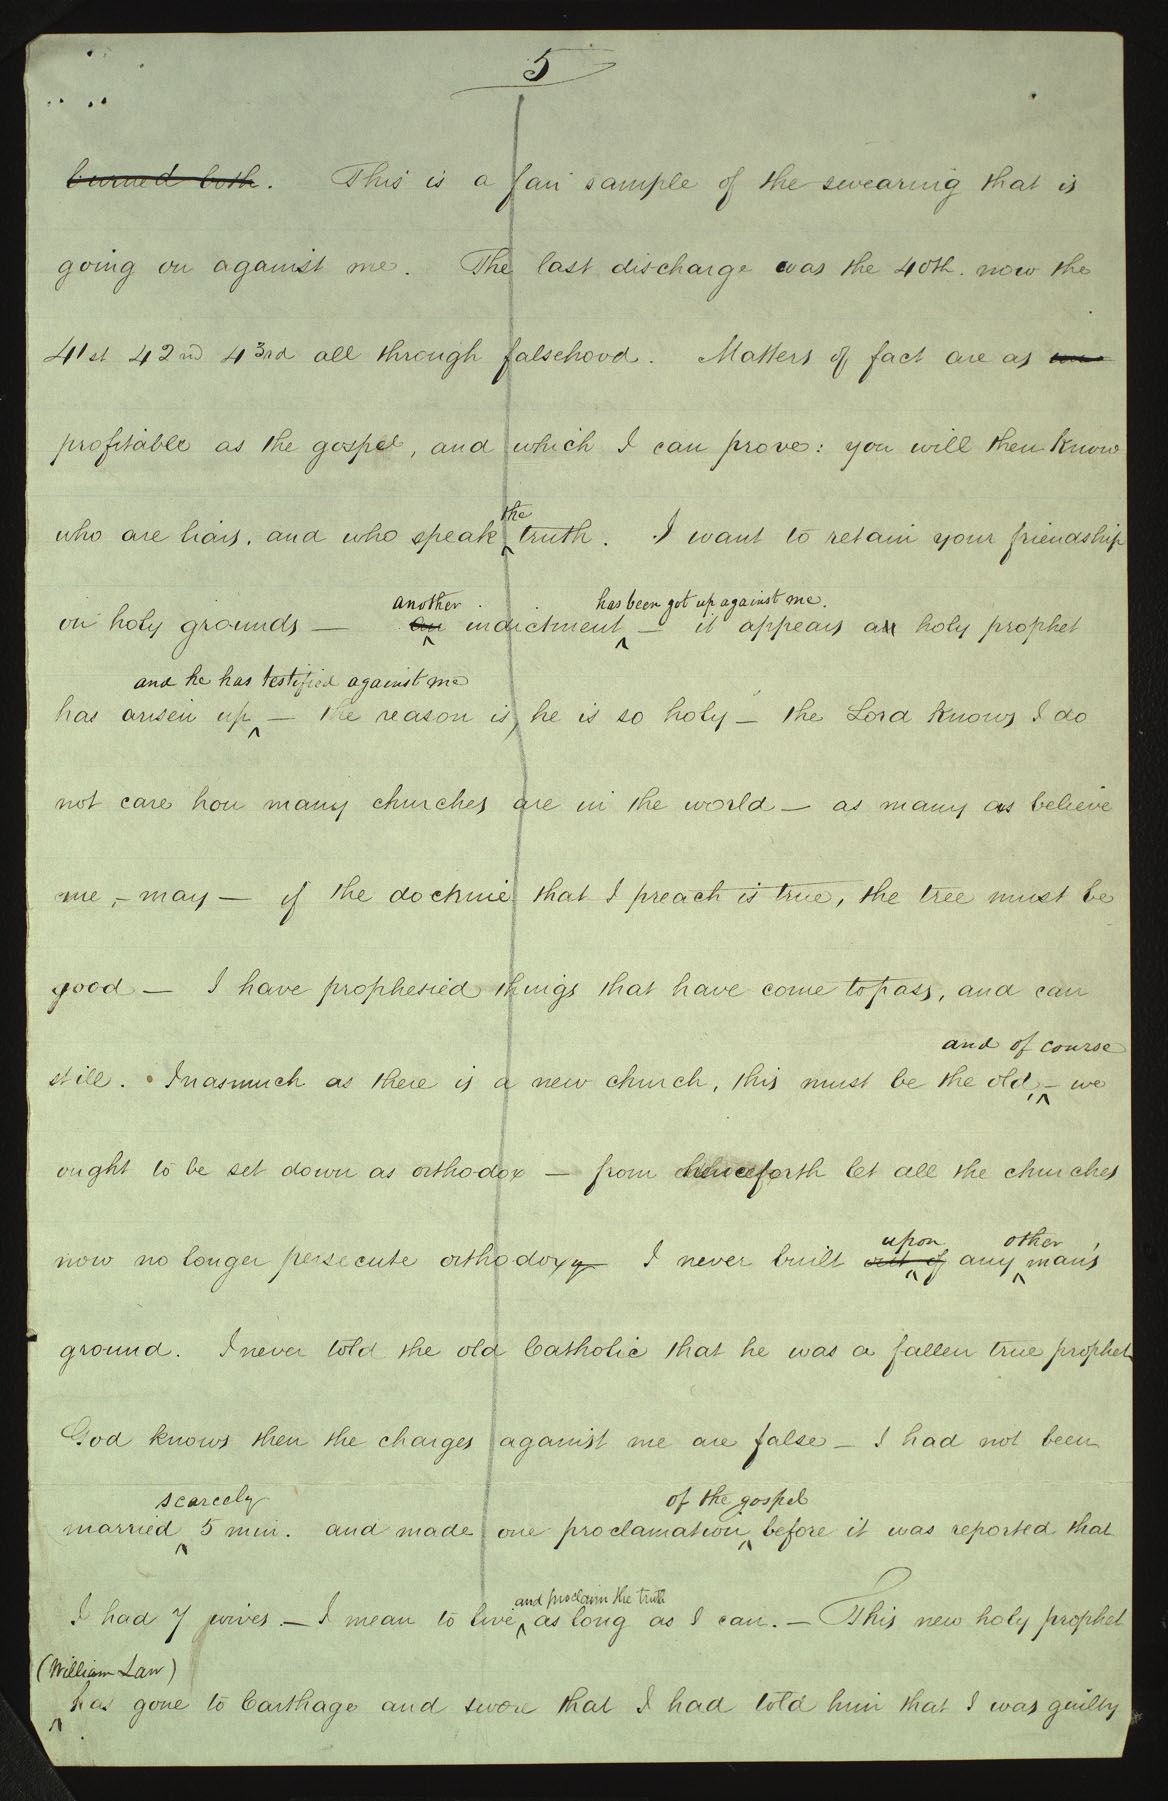 5
burned both. This is a fair sample of the swearing that is
going on against me. The last discharge was the 40th. now the
41st 42nd 43rd all through falsehood. Matters of fact are as
profitable as the gospel, and which I can prove: you will then know
the
who are liars, and who speak ^ truth. I want to retain your friendship
another has been got up against me.
on holy grounds — an ^ indictment ^ — it appears a holy prophet
and he has testified against me
has arisen up ^ — the reason is, he is so holy — the Lord knows I do
not care how many churches are in the world — as many as believe
me, — may — if the doctrine that I preach is true, the tree must be
good — I have prophesied things that have come to pass, and can
and of course
still. Inasmuch as there is a new church, this must be the old, ^ — we
ought to be set down as orthodox — from henceforth let all the churches
now no longer persecute orthodoxy — I never built
upon other
out of ^ any ^ man's
ground. I never told the old Catholic that he was a fallen true prophet
God knows then the charges against me are false — I had not been
scarcely of the gospel
married ^ 5 min. and made one proclamation ^ before it was reported that
and proclaim the truth
I had 7 wives. — I mean to live ^ as long as I can. — This new holy prophet
(William Law)
^ has gone to Carthage and swore that I had told him that I was guilty